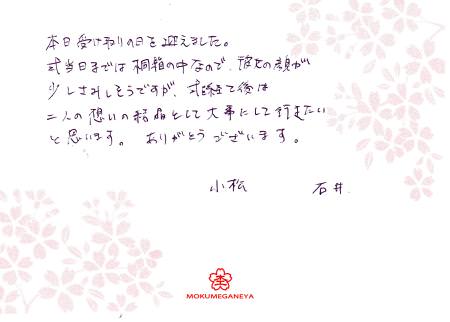 本日受け取りの日を迎えました。
式当日までは桐箱の中なので、彼女の顔が
少しさみしそうですが、式を終えて後は
二人の想いの結晶として大事にして行きたい
と思います。ありがとうございます。
小松 石井
MOKUMEGANEYA